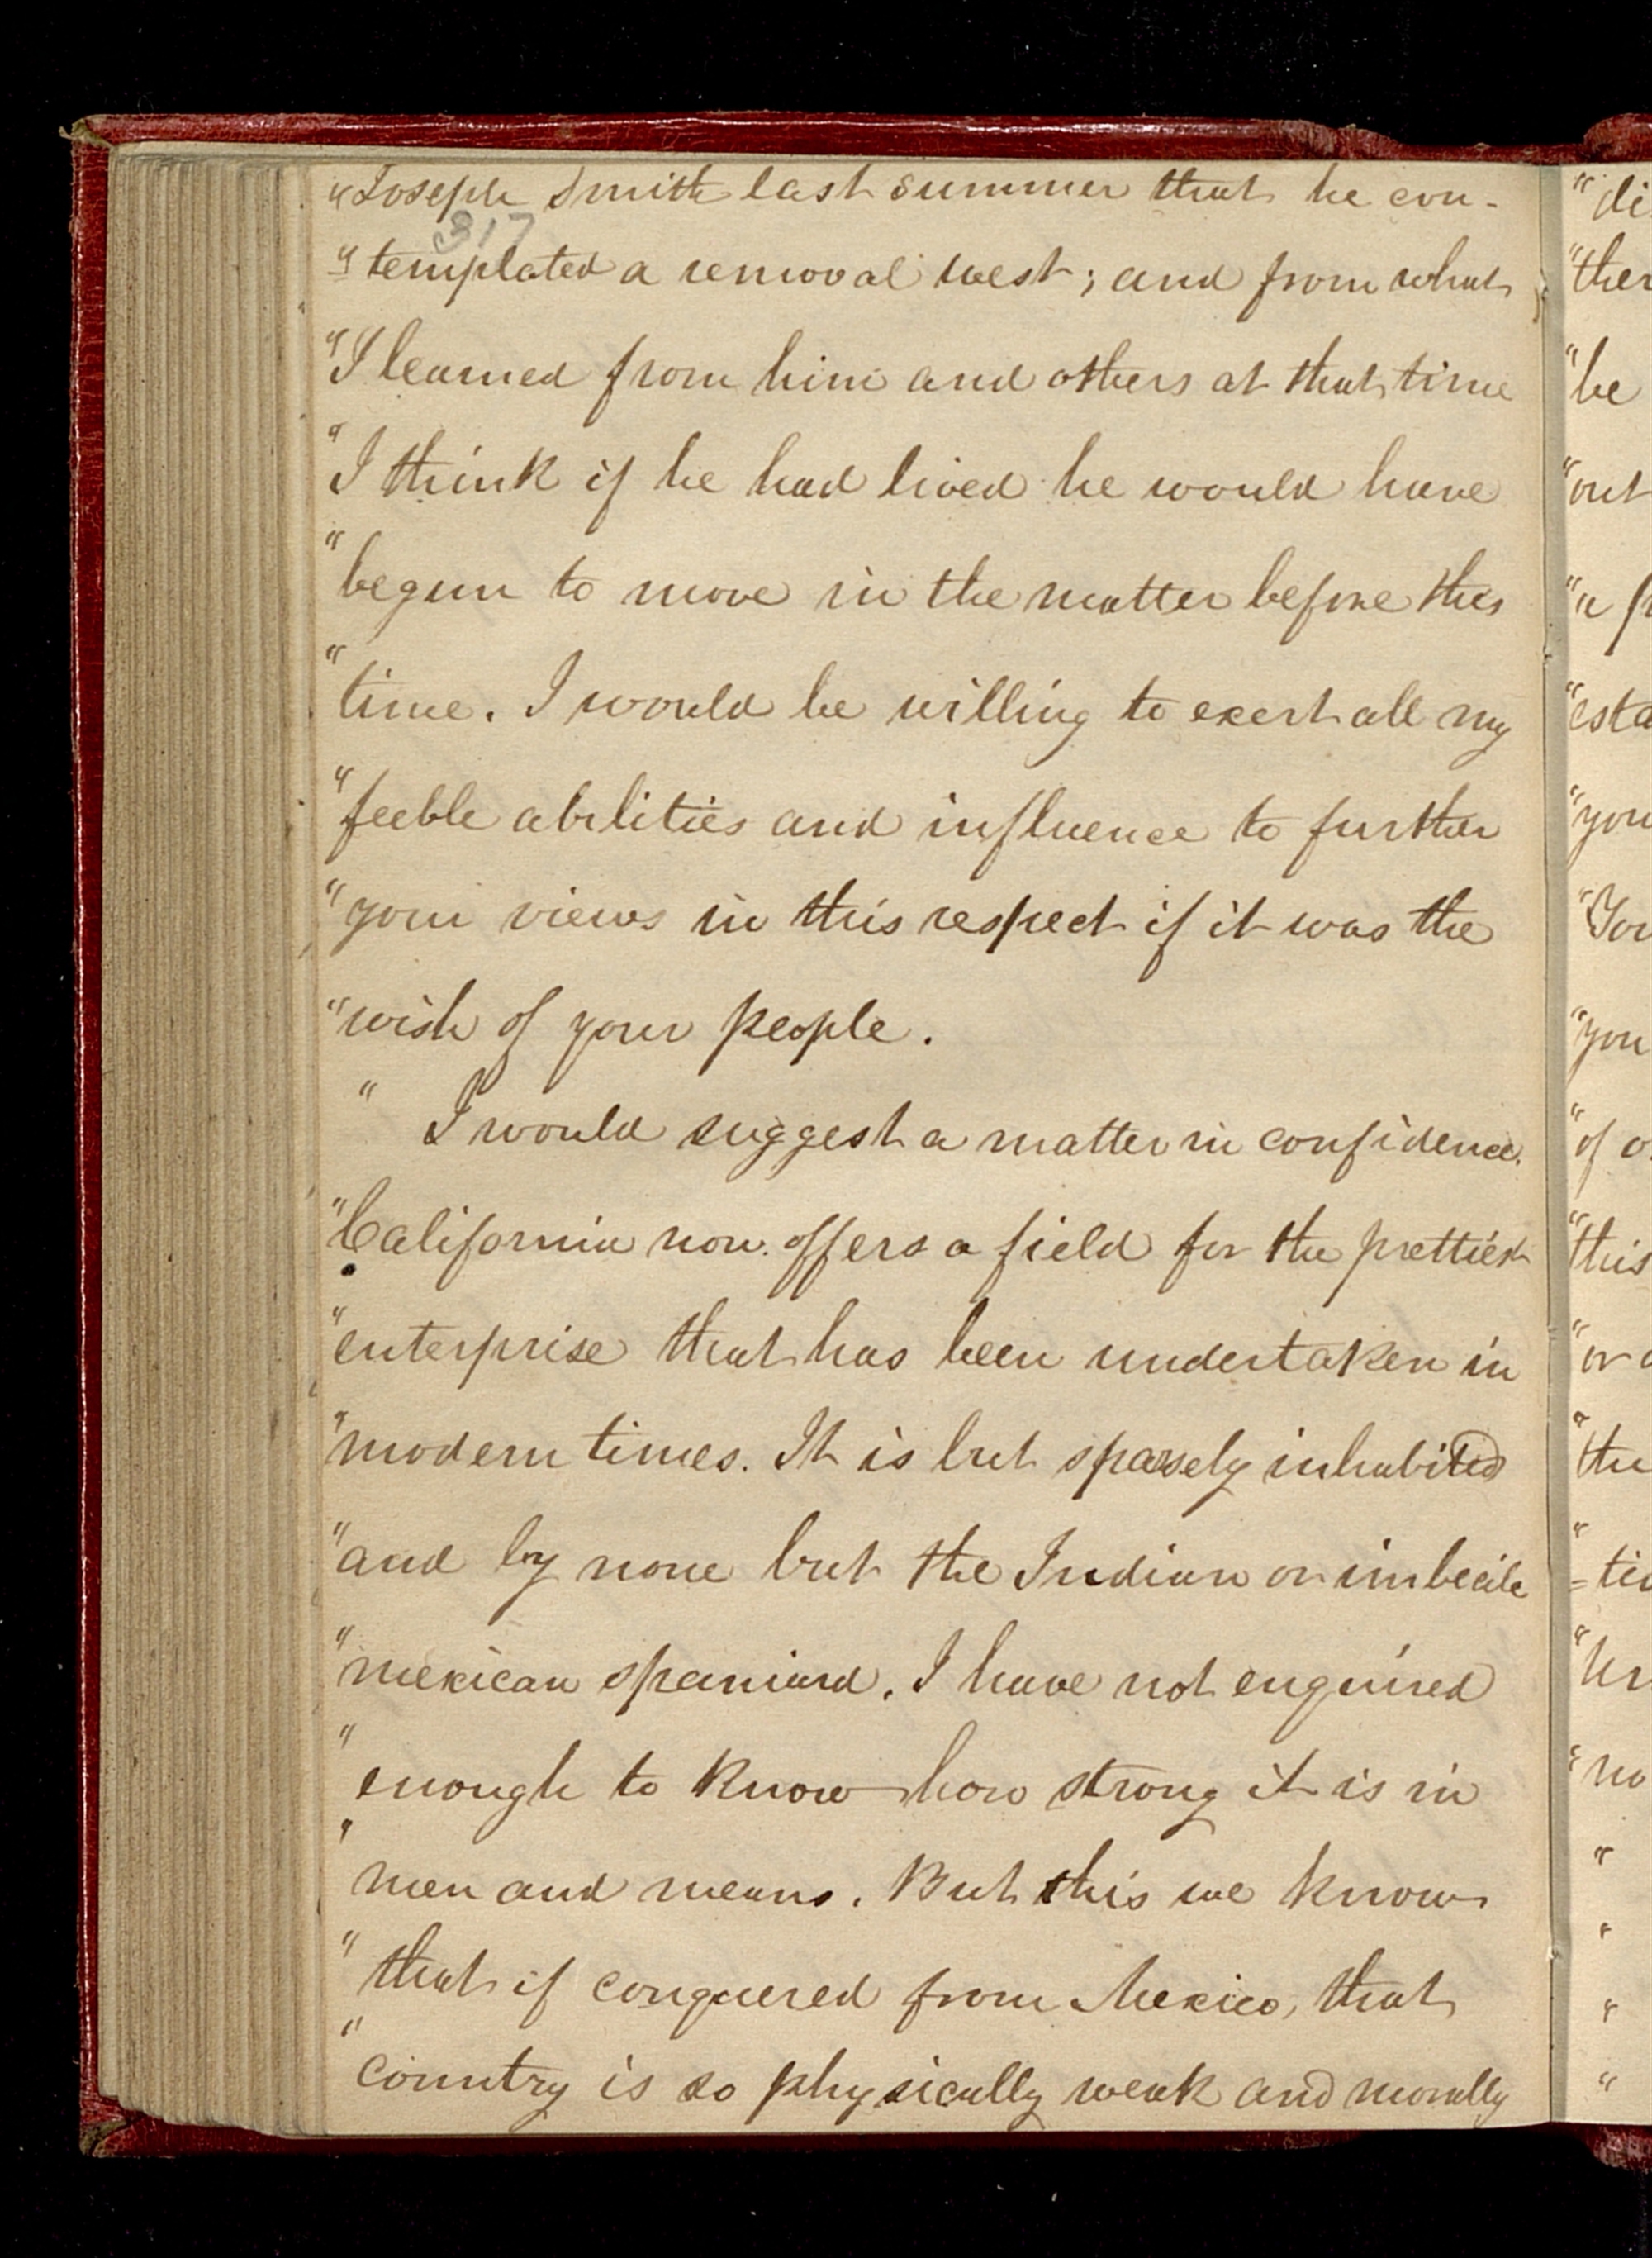 "Joseph Smith last summer that he con-
317
"templated a removal west; and from what
"I learned from him and others at that time
"I think if he had lived he would have
"begun to move in the matter before this
"time. I would be willing to exert all my
"feeble abilities and influence to further
"your views in this respect if it was the
"wish of your people.
" I would suggest a matter in confidence.
"California now offers a field for the prettiest
"enterprise that has been undertaken in
"modern times. It is but sparsely inhabited
"and by none but the Indian or imbecile
"mexican spaniard. I have not enquired
"enough to know how strong it is in
"men and means. But this we know
"that if conquered from Mexico, that
"country is so physically weak and morally
"di
"ther
"be
"out
"a
"esta
"you
"You
"you
"of
"this
"or
"the
=
"
"no
"
"
"
"